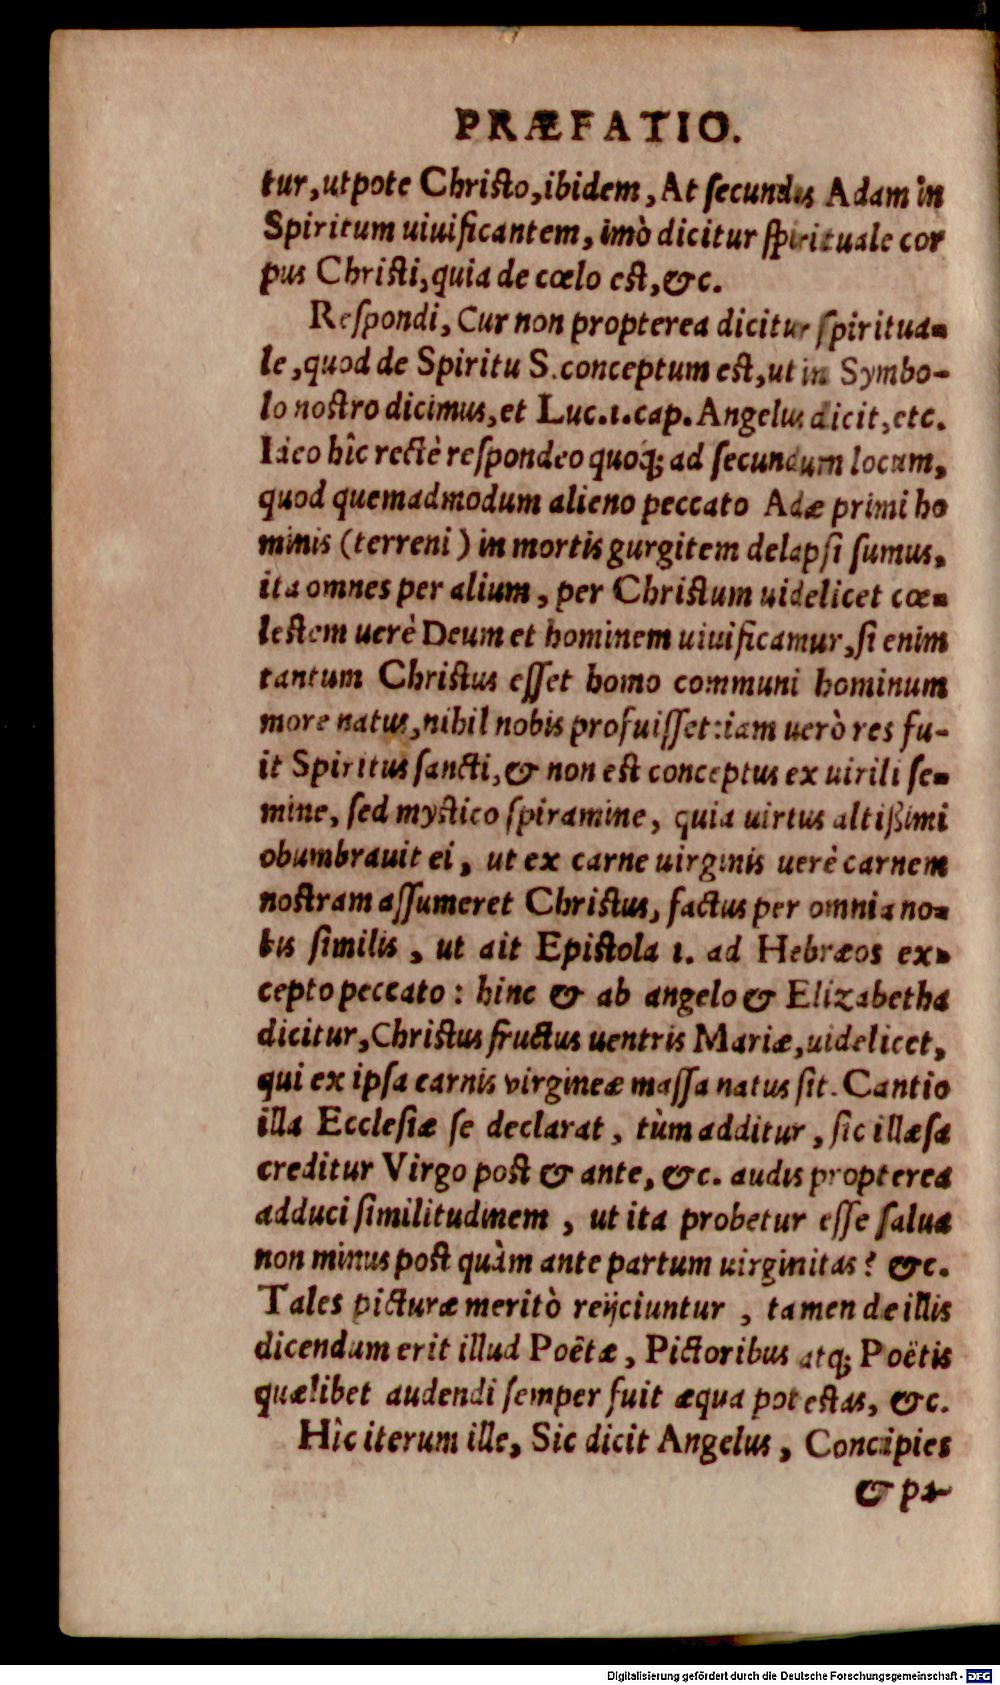 PRÆFATIO.
tur, utpote Christo, ibidem, At secundus Adam in
Spiritum uiuificantem, imò dicitur spirituale cor
pus Christi, quia de cœlo est, &c.
Respondi, Cur non propterea dicitur spiritua-
le, quod de Spiritu S. conceptum est, ut in Symbo-
lo nostro dicimus, et Luc. 1. cap. Angelus dicit, etc.
Ideo hîc rectè respondeo quoq; ad secundum locum,
quod quemadmodum alieno peccato Adæ primi ho
minis (terreni) in mortis gurgitem delapsi sumus,
ita omnes per alium, per Christum uidelicet cœ-
lestem uerè Deum et hominem uiuificamur, si enim
tantum Christus esset homo communi hominum
more natus, nihil nobis profuisset: iam uerò res fu-
it Spiritus sancti, & non est conceptus ex uirili se-
mine, sed mystico spiramine, quia uirtus altißimi
obumbrauit ei, ut ex carne uirginis uerè carnem
nostram assumeret Christus, factus per omnia no-
bis similis, ut ait Epistola 1. ad Hebræos ex-
cepto peccato: hinc & ab angelo & Elizabetha
dicitur, Christus fructus uentris Mariæ, uidelicet,
qui ex ipsa carnis virgineæ massa natus sit. Cantio
illa Ecclesiæ se declarat, tùm additur, sic illæsa
creditur Virgo post & ante, &c. audis propterea
adduci similitudinem, ut ita probetur esse salua
non minus post quàm ante partum uirginitas? &c.
Tales picturæ meritò reijciuntur, tamen de illis
dicendum erit illud Poëtæ, Pictoribus atq; Poëtis
quælibet audendi semper fuit æqua potestas, &c.
Hîc iterum ille, Sic dicit Angelus, Concipies
& pa-
Digitalisierung gefördert durch die Deutsche Forschungsgemeinschaft - DFG